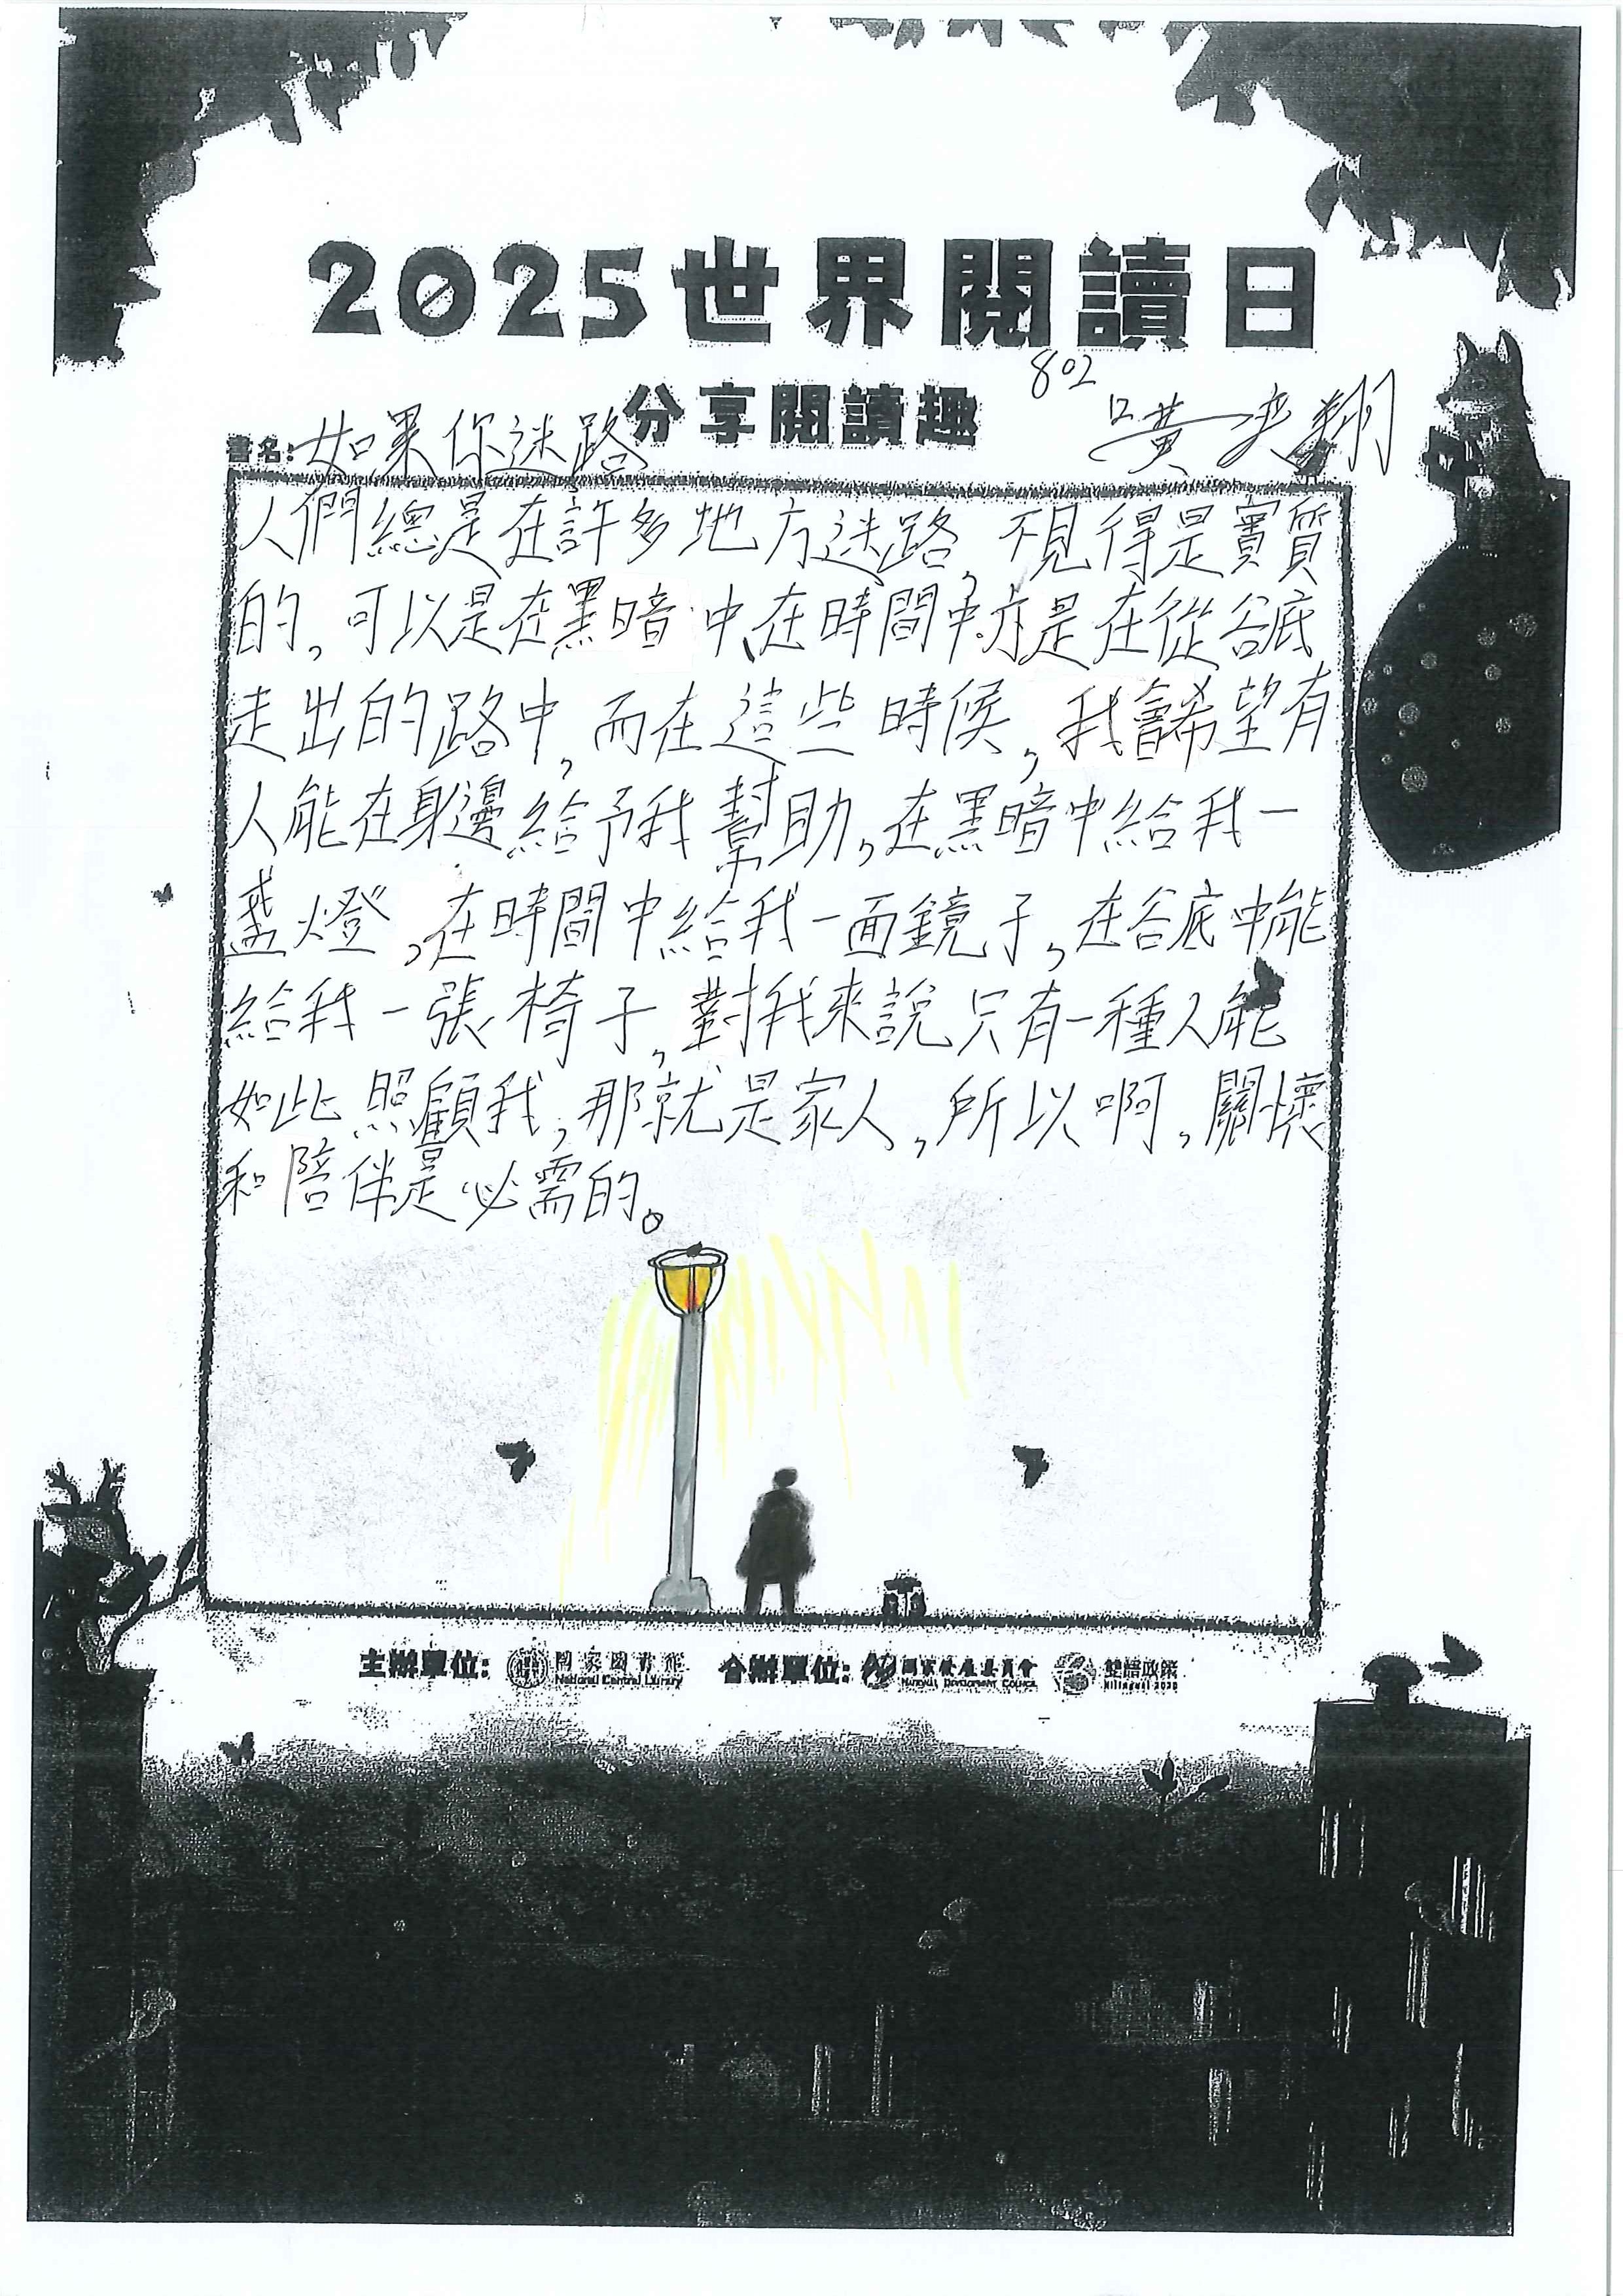 2025世界閱讀日
分享閱讀趣
802
黃奕翔
書名:如果你迷路
人們總是在許多地方迷路,不見得是實質
的,可以是在黑暗中、在時間中,亦是在從谷底
走出的路中,而在這些時候,我會希望有
人能在身邊給予我幫助,在黑暗中給我一
盞燈,在時間中給我一面鏡子,在谷底中能
給我一張椅子,對我來說只有一種人能
如此照顧我,那就是家人,所以啊,關懷
和陪伴是必需的。
主辦單位: 國家圖書館 National Central Library 合辦單位: 國家發展委員會 National Development Council 雙語政策 Bilingual 2030